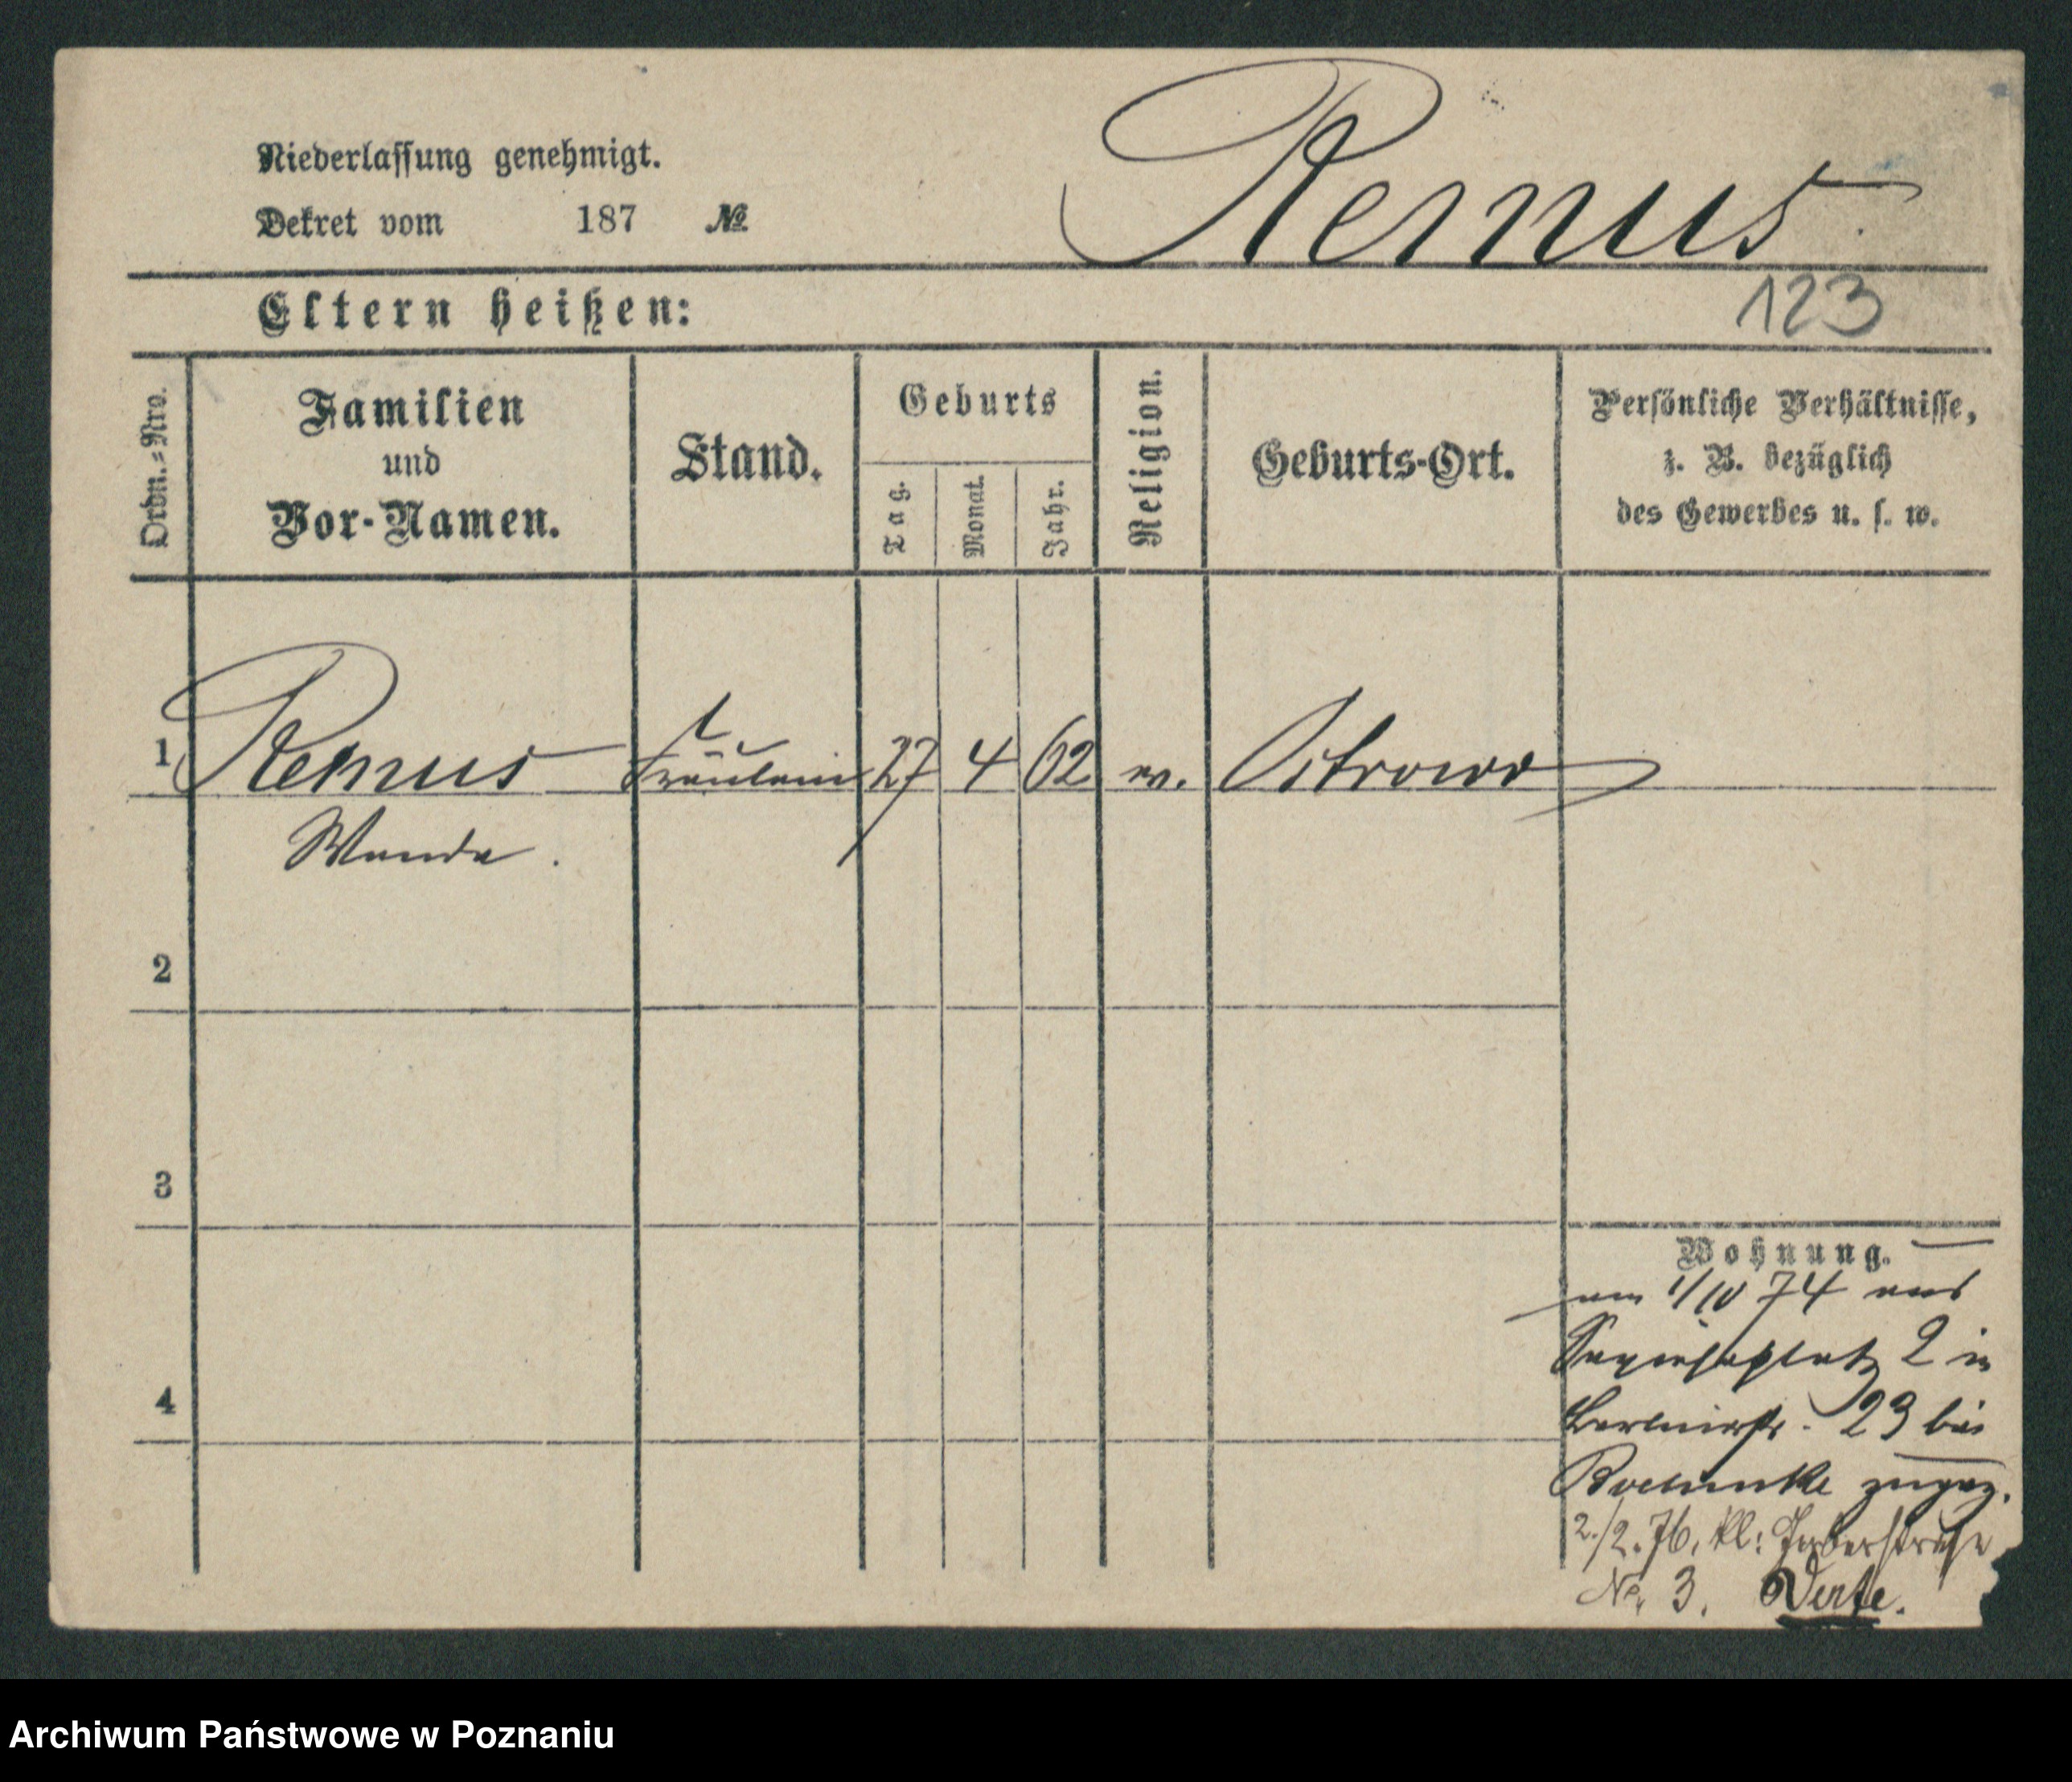 Niederlassung genehmigt.
Dekret vom 187 №
Remus.
Eltern heißen:
123
Ordn.-Nro.
Familien
und
Vor-Namen.
Stand.
Geburts
Tag.
Monat.
Jahr.
Religion.
Geburts-Ort.
Persönliche Verhältnisse,
z. B. bezüglich
des Gewerbes u. s. w.
1 Remus Fräulein 27 4 62 ev. Ostrowo
Wanda.
2
3
Wohnung.
am 1/IV 74 aus
Sapiehaplatz 2 in
Berlinerstr. 23 bei
4
zugez.
2./2. 76. kl:
No. 3.
Archiwum Państwowe w Poznaniu